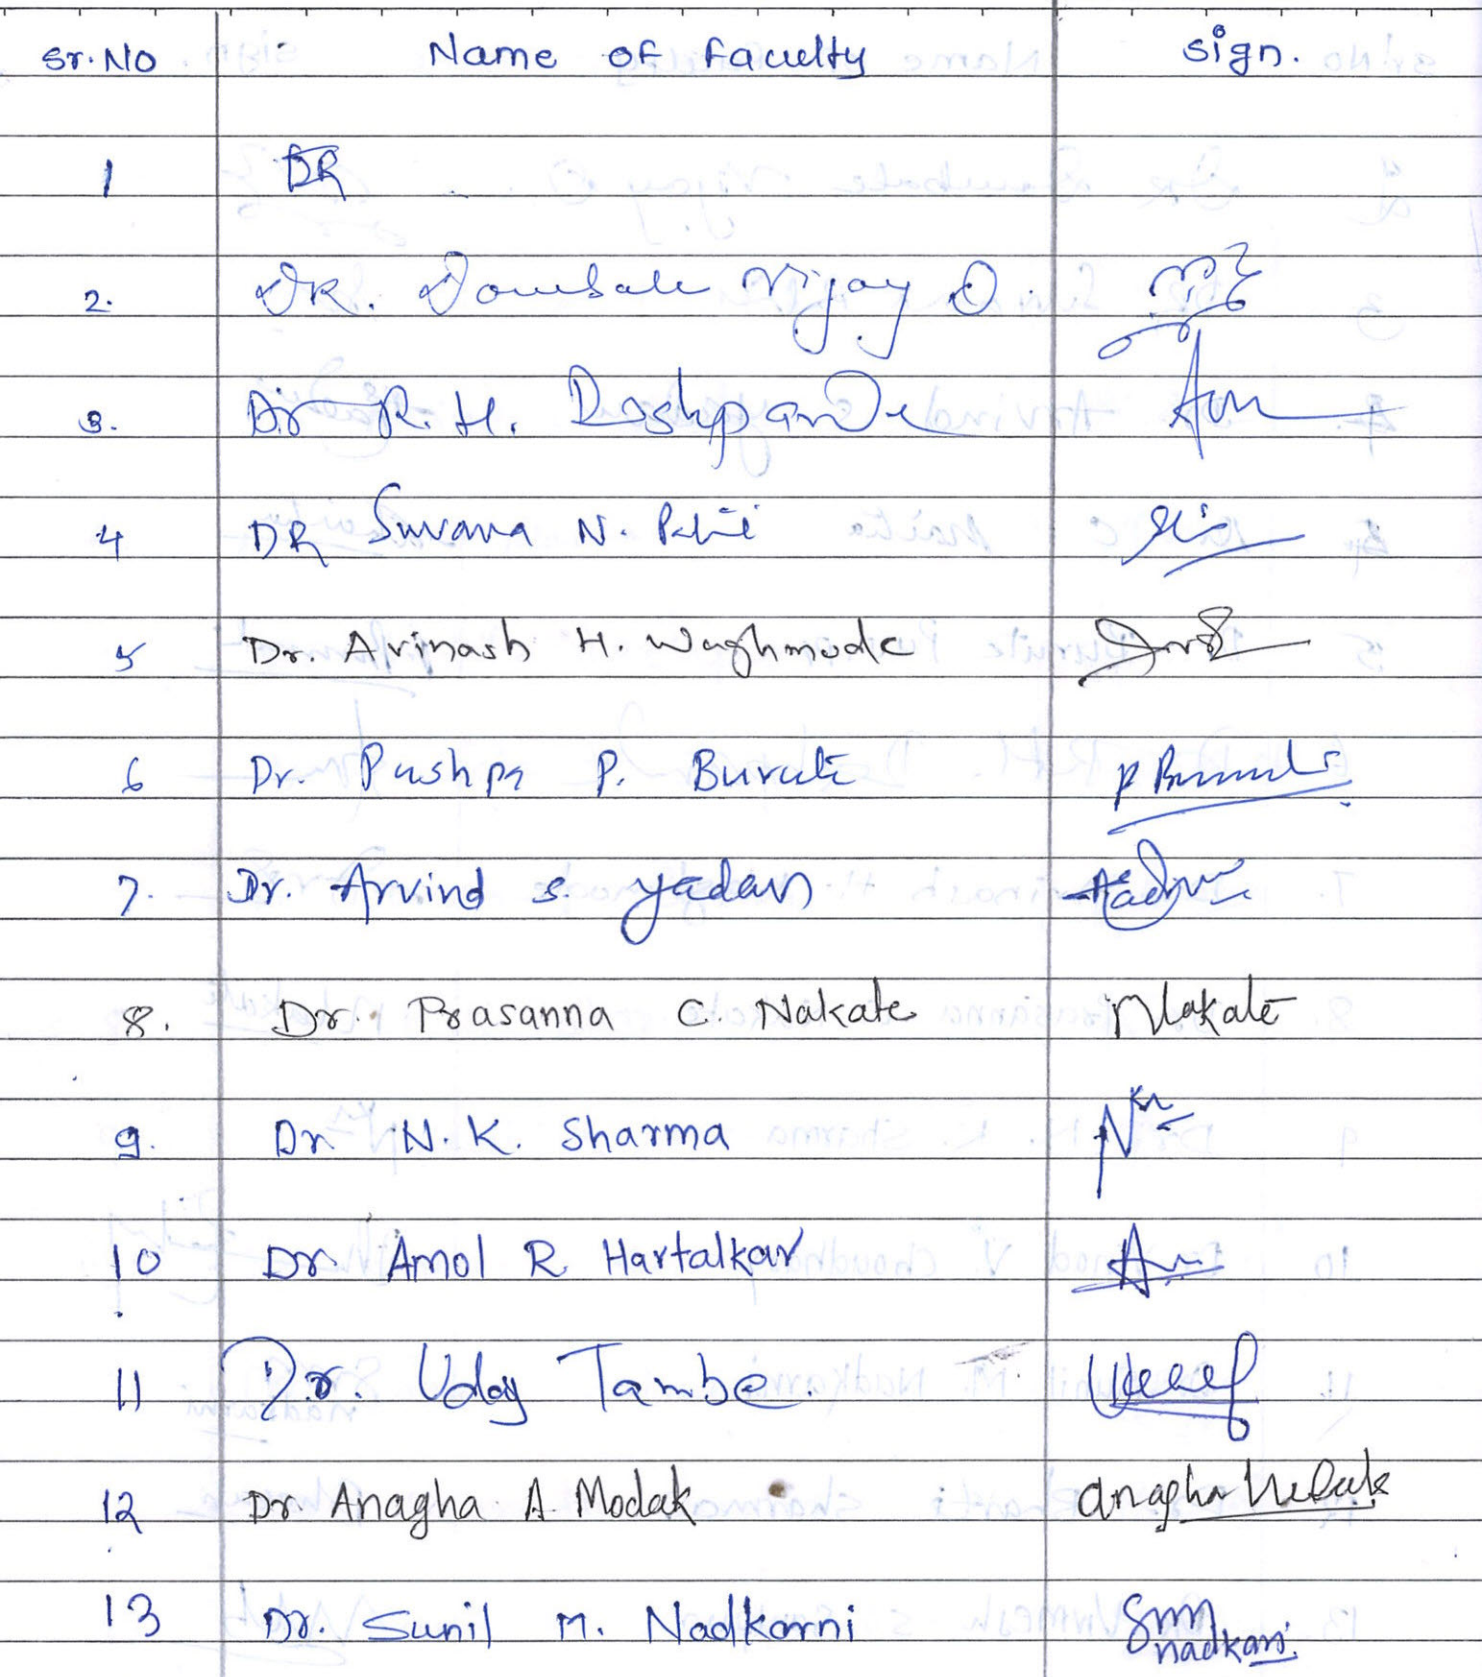 Sr.No Name of Faculty Sign.
1 DR
2. DR. Dombale Vijay D.
3. Dr R. H. Deshpande
4 DR Suvarna N. Patil
5 Dr. Avinash H. Waghmode
6 Dr. Pushpa P. Burute P Burute
7. Dr. Arvind S. Yadav
8. Dr. Prasanna C. Nakate Nakate
9. Dr N.K. Sharma
10 Dr. Amol R Hartalkar
11 Dr. Uday Tambe.
12 Dr Anagha A. Modak anagha
13 Dr. Sunil M. Nadkarni Smn
nadkarni